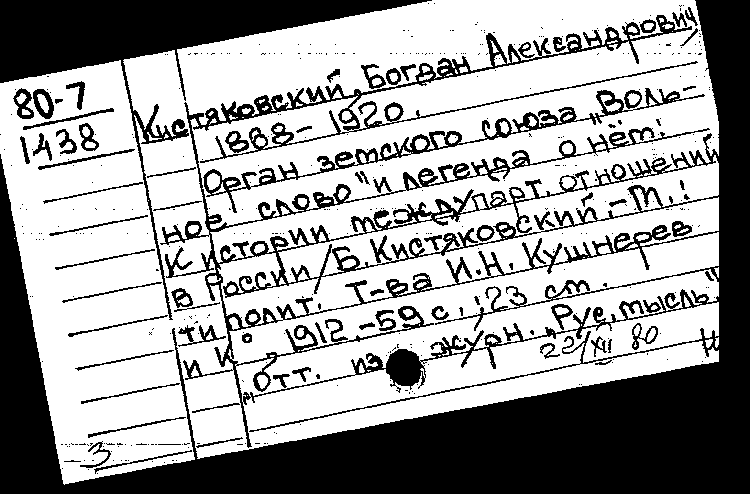 80-7
1438
Кистяковский, Богдан Александрович,
1868 - 1920.
Орган земского союза „Воль-
ное слово" и легенда о нём:
К истории междупарт. отношений
в России / Б. Кистяковский. - М.:
типолит. т-ва И.Н. Кушнерев
и К°, 1912. - 59 с.; 23 см.
Отт. из журн. „Рус. мысль"
22/XII 80
3